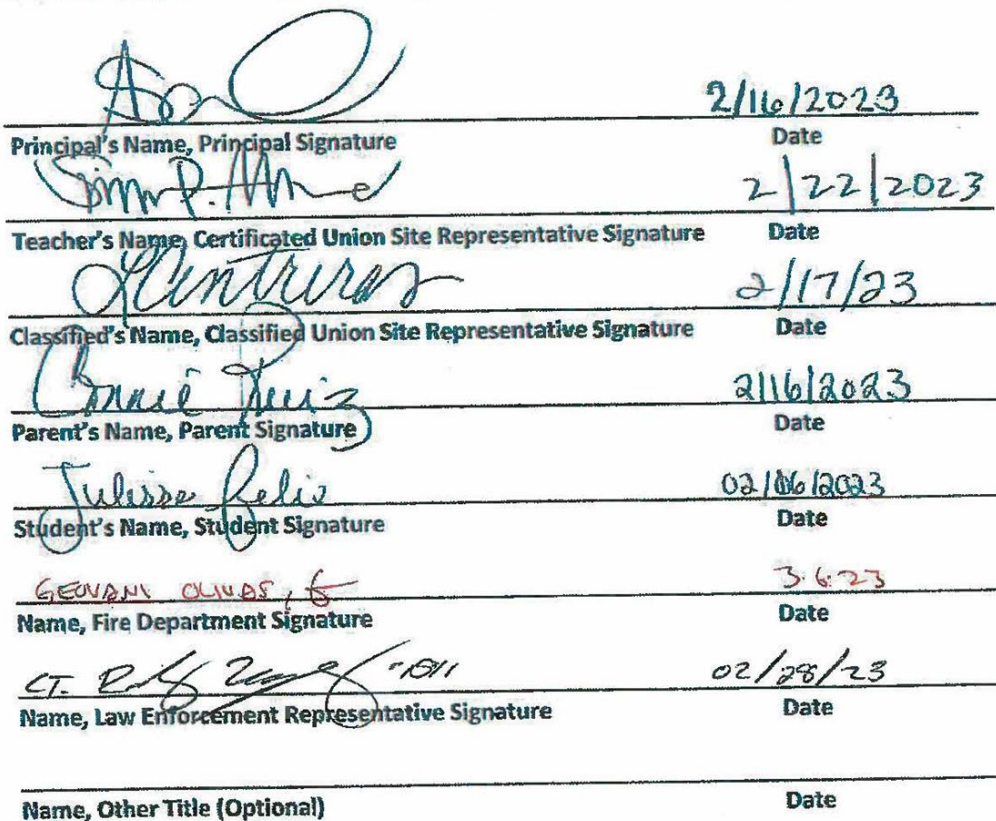 2/16/2023
Principal's Name, Principal Signature Date
2/22/2023
Teacher's Name, Certificated Union Site Representative Signature Date
2/17/23
Classified's Name, Classified Union Site Representative Signature Date
Ruiz 2/16/2023
Parent's Name, Parent Signature Date
Julissa Felix 02/06/2023
Student's Name, Student Signature Date
GEOVANI OLIVAS, 3.6.23
Name, Fire Department Signature Date
02/28/23
Name, Law Enforcement Representative Signature Date
Name, Other Title (Optional) Date